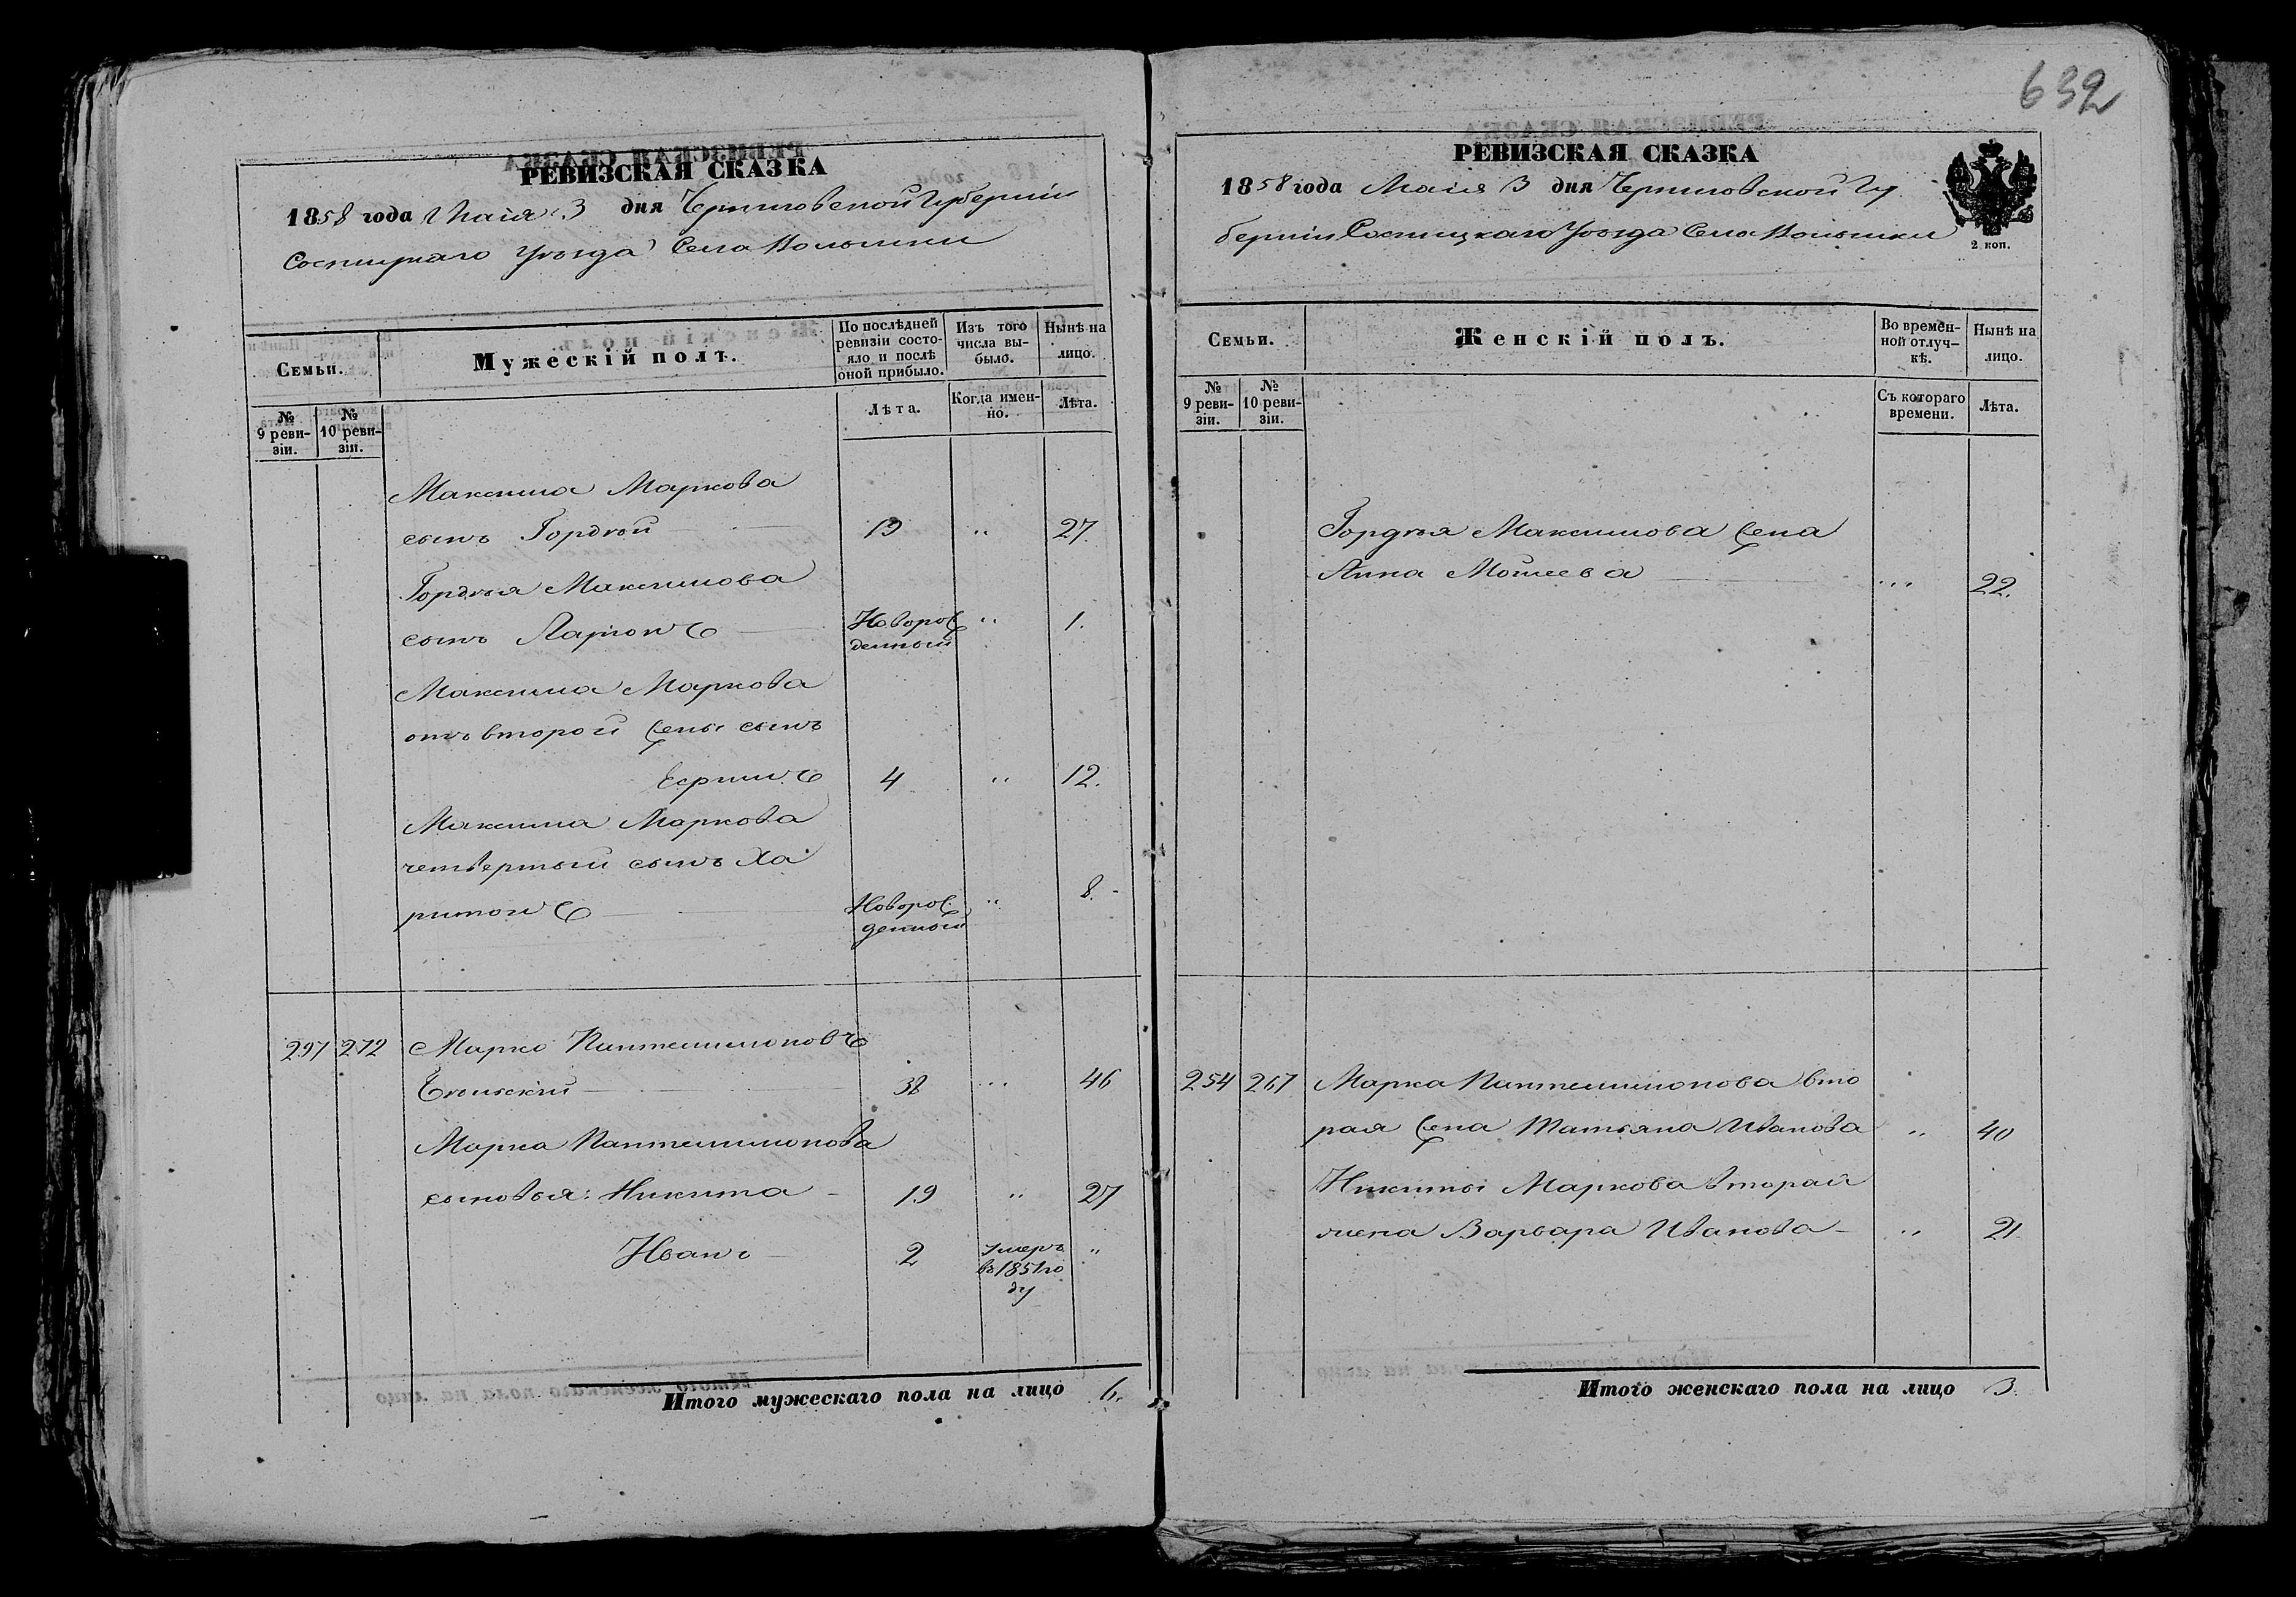 632
РЕВИЗСКАЯ СКАЗКА
1858 года Маія 3 дня Черниговской Губерніи
Сосницкаго Уѣзда Села Волынки
Семьи.
Мужескій полъ.
По послѣдней ревизіи состояло и послѣ оной прибыло.
Изъ того числа выбыло.
Нынѣ на лицо.
№ 9 ревизіи.
№ 10 ревизіи.
Лѣта.
Когда именно.
Лѣта.
Максима Маркова
сынъ Гордѣй 19 " 27.
Гордѣя Максимова
сынъ Ларіонъ Новорожденный " 1.
Максима Маркова
отъ второй жены сынъ
4 " 12.
Максима Маркова
четвертый сынъ Ха
ритонъ Новорожденный " 8.
297 272 Марко Пантелимоновъ
38 " 46
Марка Пантелимонова
сыновья: Никита 19 " 27
Иванъ 2 Умеръ въ 1851 году "
Итого мужескаго пола на лицо 6.
РЕВИЗСКАЯ СКАЗКА
1858 года Маія 3 дня Черниговской Гу
берніи Сосницкаго Уѣзда Села Волынки
2 коп.
Семьи.
Женскій полъ.
Во временной отлучкѣ.
Нынѣ на лицо.
№ 9 ревизіи.
№ 10 ревизіи.
Съ котораго времени.
Лѣта.
Гордѣя Максимова жена
Анна Моисеева " 22.
254 267 Марка Пантелимонова вто
рая жена Татьяна Иванова " 40
Никиты Маркова вторая
жена Варвара Иванова " 21
Итого женскаго пола на лицо 3.